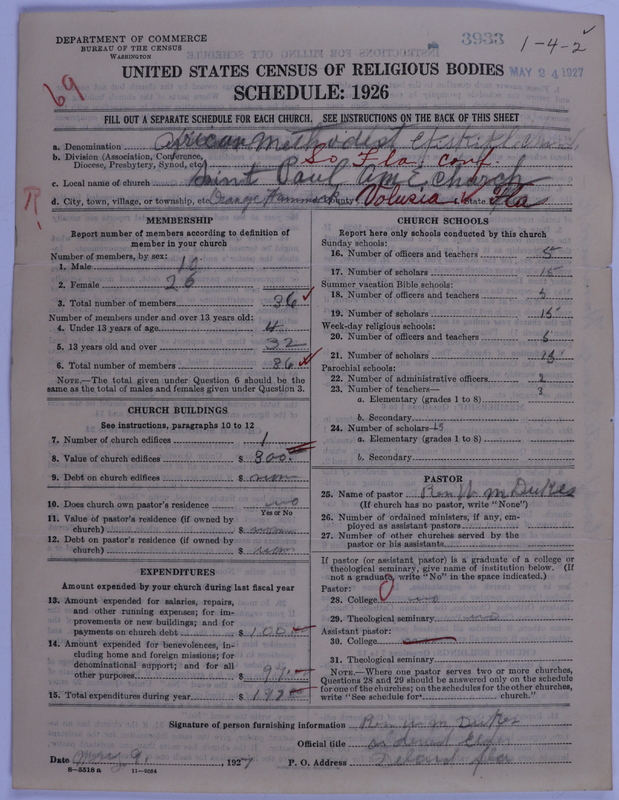 3933
1-4-2
DEPARTMENT OF COMMERCE
BUREAU OF THE CENSUS
WASHINGTON
UNITED STATES CENSUS OF RELIGIOUS BODIES
MAY 24 1927
SCHEDULE: 1926
69
FILL OUT A SEPARATE SCHEDULE FOR EACH CHURCH. SEE INSTRUCTIONS ON THE BACK OF THIS SHEET
a. Denomination African Methodist
b. Division (Association, Conference, Diocese, Presbytery, Synod, etc.) So Fla. conf
c. Local name of church Saint Paul AME church
d. City, town, village, or township, etc. Orange Hammock County Volusia State Fla
R
MEMBERSHIP
Report number of members according to definition of
member in your church
Number of members, by sex:
1. Male 10
2. Female 26
3. Total number of members 36
Number of members under and over 13 years old:
4. Under 13 years of age 4
5. 13 years old and over 32
6. Total number of members 36
NOTE.—The total given under Question 6 should be the
same as the total of males and females given under Question 3.
CHURCH BUILDINGS
See instructions, paragraphs 10 to 12
7. Number of church edifices 1
8. Value of church edifices $ 300.
9. Debt on church edifices $ non
10. Does church own pastor's residence no
Yes or No
11. Value of pastor's residence (if owned by
church) $ non
12. Debt on pastor's residence (if owned by
church) $ non
EXPENDITURES
Amount expended by your church during last fiscal year
13. Amount expended for salaries, repairs,
and other running expenses; for im-
provements or new buildings; and for
payments on church debt $ 100
14. Amount expended for benevolences, in-
cluding home and foreign missions; for
denominational support; and for all
other purposes $
15. Total expenditures during year $
CHURCH SCHOOLS
Report here only schools conducted by this church
Sunday schools:
16. Number of officers and teachers 5
17. Number of scholars 15
Summer vacation Bible schools:
18. Number of officers and teachers 5
19. Number of scholars 15
Week-day religious schools:
20. Number of officers and teachers 5
21. Number of scholars 15
Parochial schools:
22. Number of administrative officers 2
23. Number of teachers— 3
a. Elementary (grades 1 to 8)
b. Secondary
24. Number of scholars— 15
a. Elementary (grades 1 to 8)
b. Secondary
PASTOR
25. Name of pastor Rev W M Dukes
(If church has no pastor, write "None")
26. Number of ordained ministers, if any, em-
ployed as assistant pastors
27. Number of other churches served by the
pastor or his assistants
If pastor (or assistant pastor) is a graduate of a college or
theological seminary, give name of institution below. (If
not a graduate, write "No" in the space indicated.)
Pastor:
28. College no
29. Theological seminary no
Assistant pastor:
30. College
31. Theological seminary
NOTE.—Where one pastor serves two or more churches,
Questions 28 and 29 should be answered only on the schedule
for one of the churches; on the schedules for the other churches,
write "See schedule for church."
Signature of person furnishing information Rev W M Dukes
Official title Elder
Date May 9, 1927 P. O. Address Deland Fla
8—5518 a 11—9064